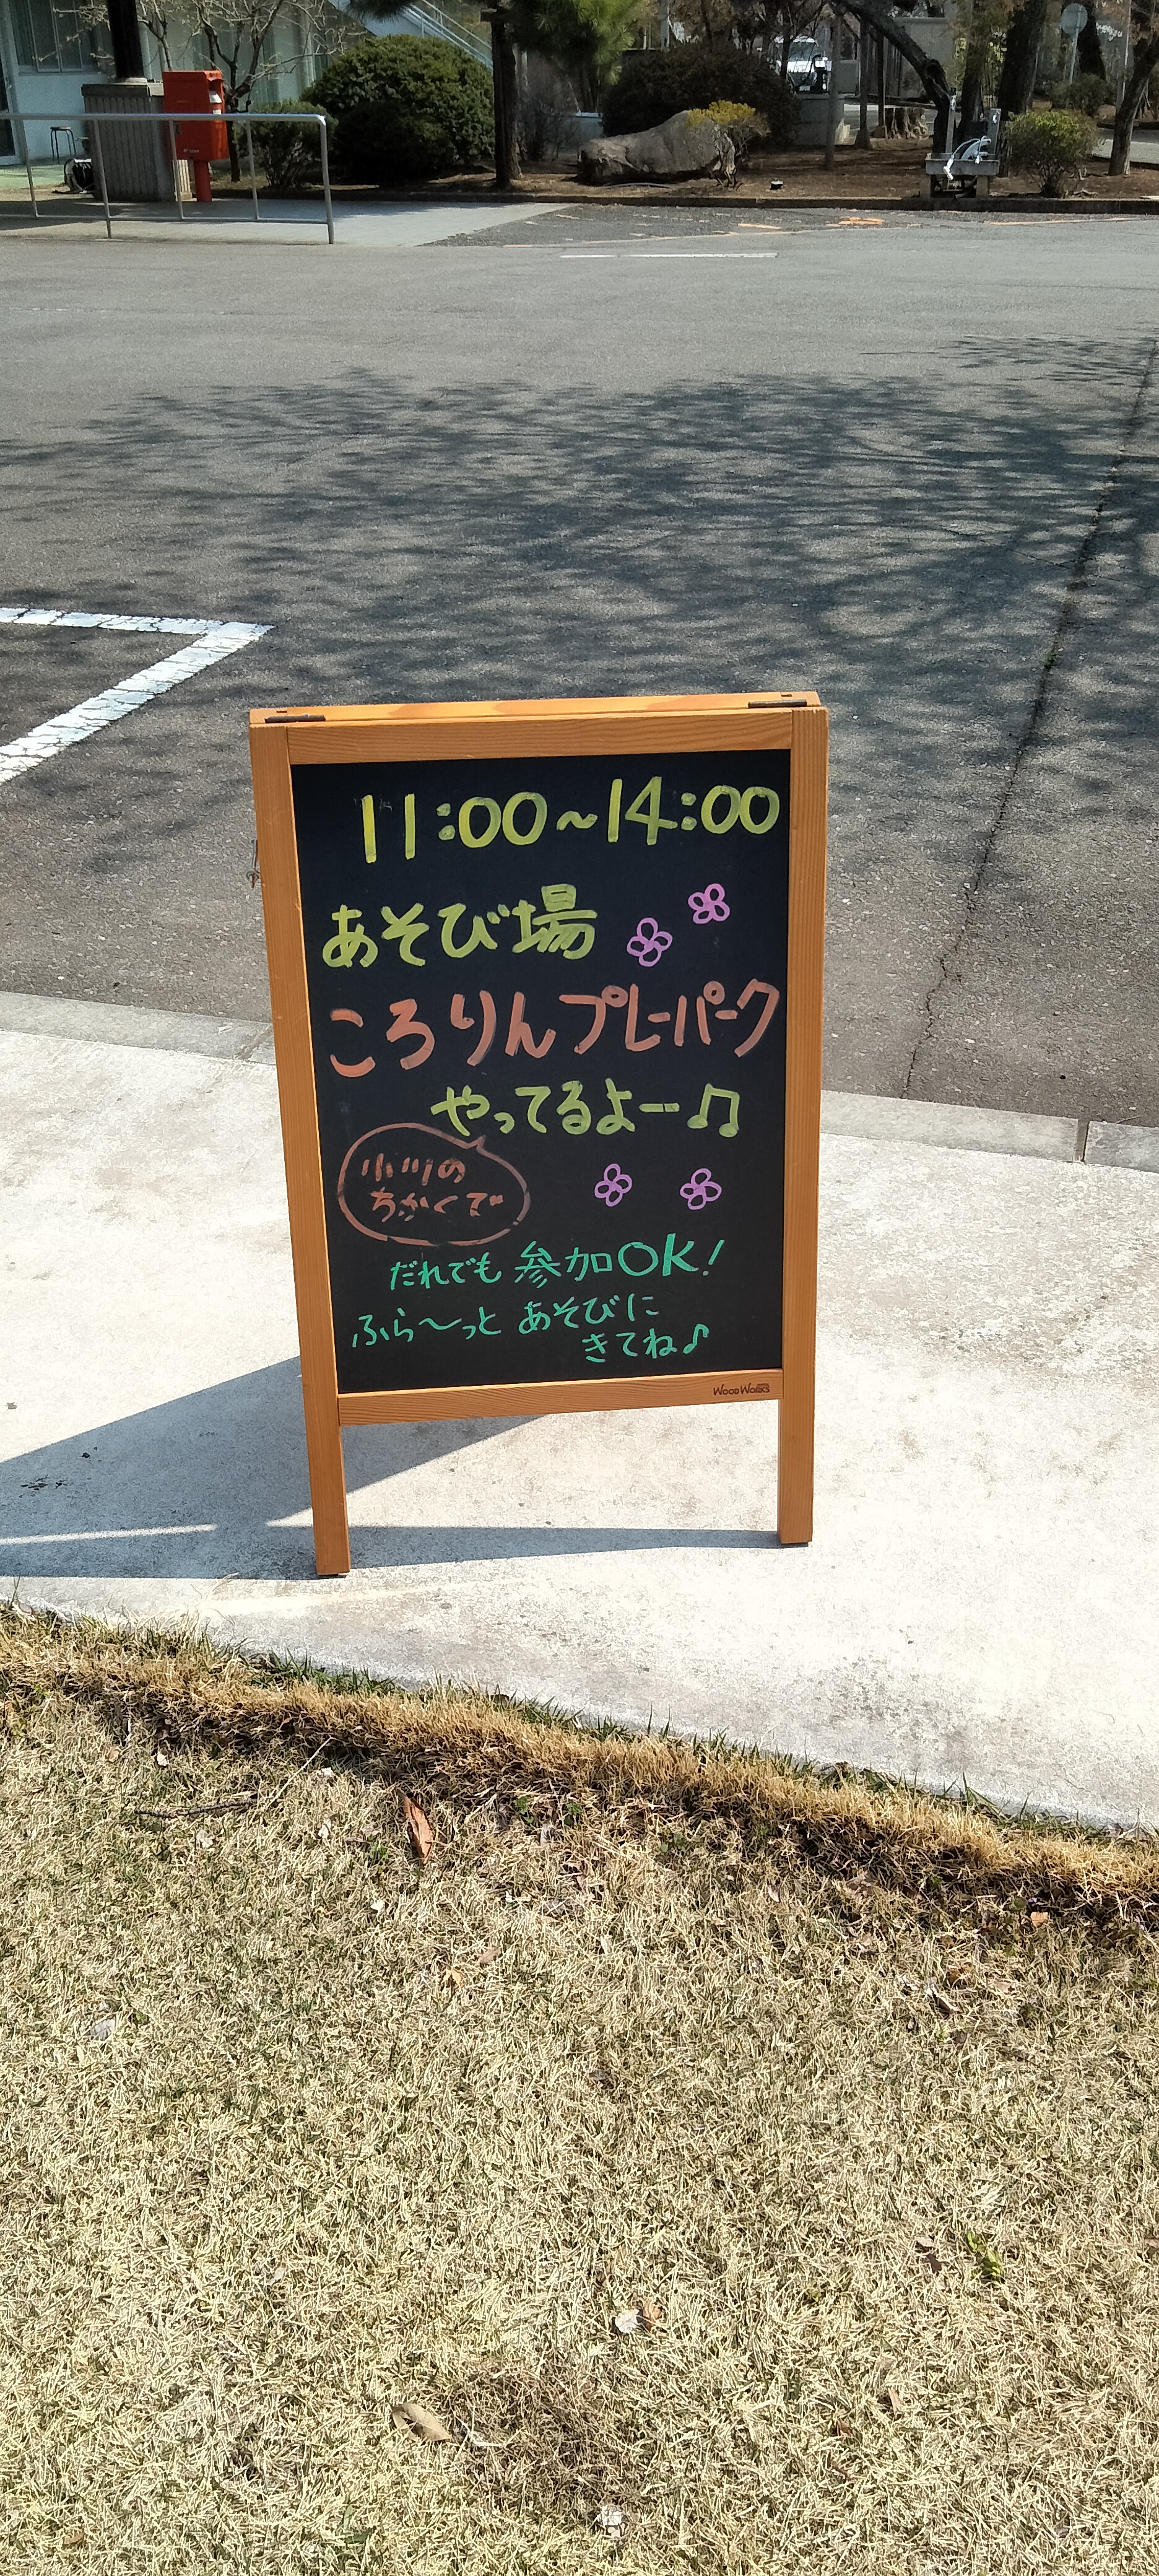 11:00~14:00
あそび場
ころりんプレーパーク
やってるよー♫
小川の
ちかくで
だれでも 参加OK!
ふら〜っと あそびに
きてね♪
WOOD WORKS